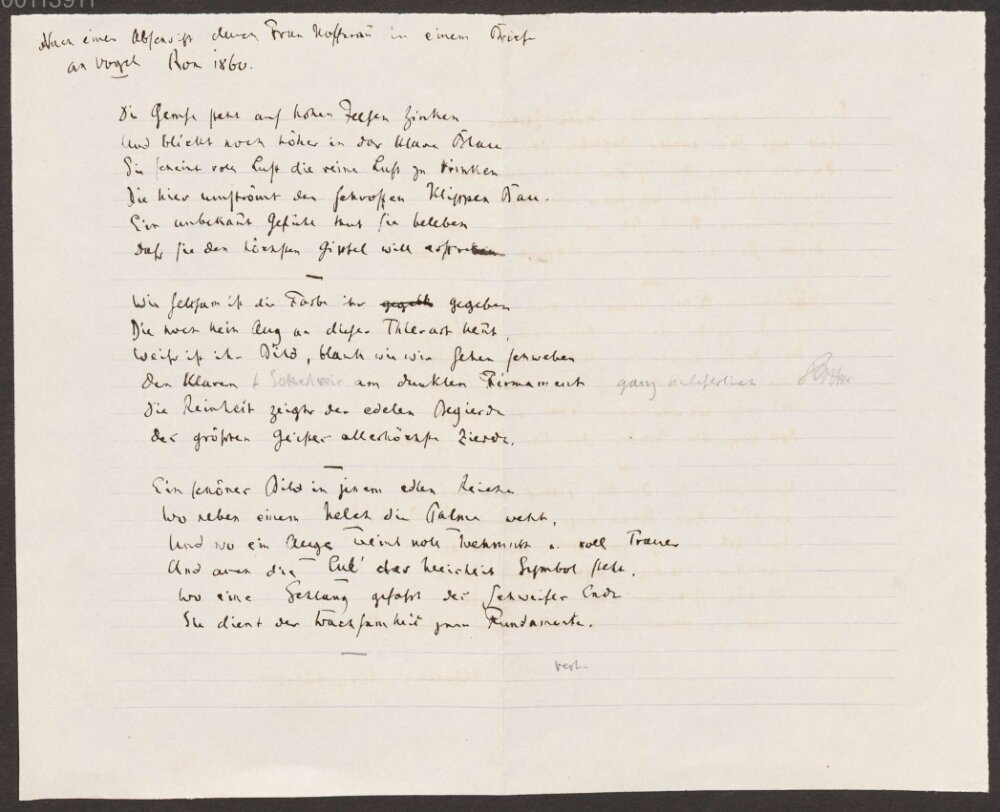 Nach einer Abschrift durch Frau Hoffmann in einem Briefe
an Vogel Rom 1860.
Die Gemse steht auf hohen Felsen Zinken
Und blickt noch höher in das klare Blau
Sie scheint voll Lust die reine Luft zu trinken
Die hier umströmt den schroffen Klippen Bau.
Ein unbekant Gefühl thut sie beleben
Daß sie den höchsten Gipfel will erstreben
Wie seltsam ist die Farbe ihr gegeben
Die noch kein Aug an dieser Thierart kent,
Weiß ist ihr Bild, blank wie wir sehen schweben
Den Klaren am dunklen Firmament ganz
Die Reinheit zeigt der edelen Begierde
Der größten Geister allerhöchste Zierde.
Ein schönes Bild in jenem edlen Reiche
Wo neben einem Kelch die Palme weht,
Und wo ein Auge weint voll Wehmuth u. voll Trauer
Und auch die Eul' der Weisheit Symbol steht.
Wo eine Schlang gefaßt des Schweifes Ende
Sie dient der Wachsamkeit zum Fundamente.